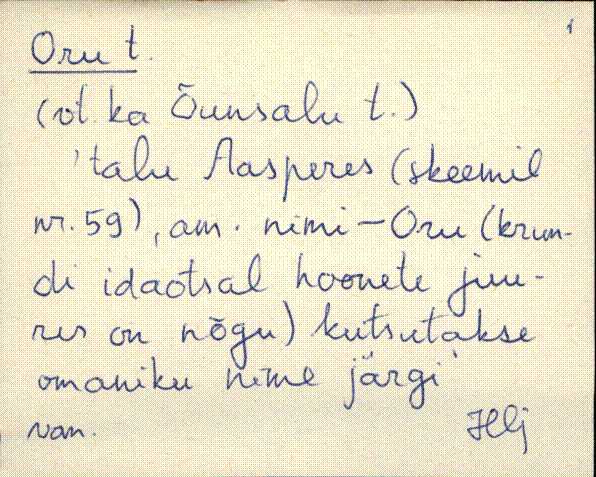 1
Oru t.
(vt. ka Õunsalu t.)
'talu Aasperes (skeemil
nr. 59), am. nimi - Oru (krun-
di idaotsal hoonete juu-
res on nõgu) kutsutakse
omaniku nime järgi'
van. Hlj